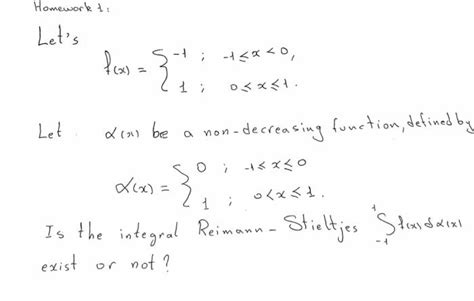 Homework 1:
Let's
f(x) = { -1 ; -1 ≤ x < 0,
1 ; 0 ≤ x ≤ 1.
Let α(x) be a non-decreasing function, defined by
α(x) = { 0 ; -1 ≤ x ≤ 0
1 ; 0 < x ≤ 1.
Is the integral Reimann-Stieltjes ∫₋₁¹ f(x) dα(x)
exist or not?